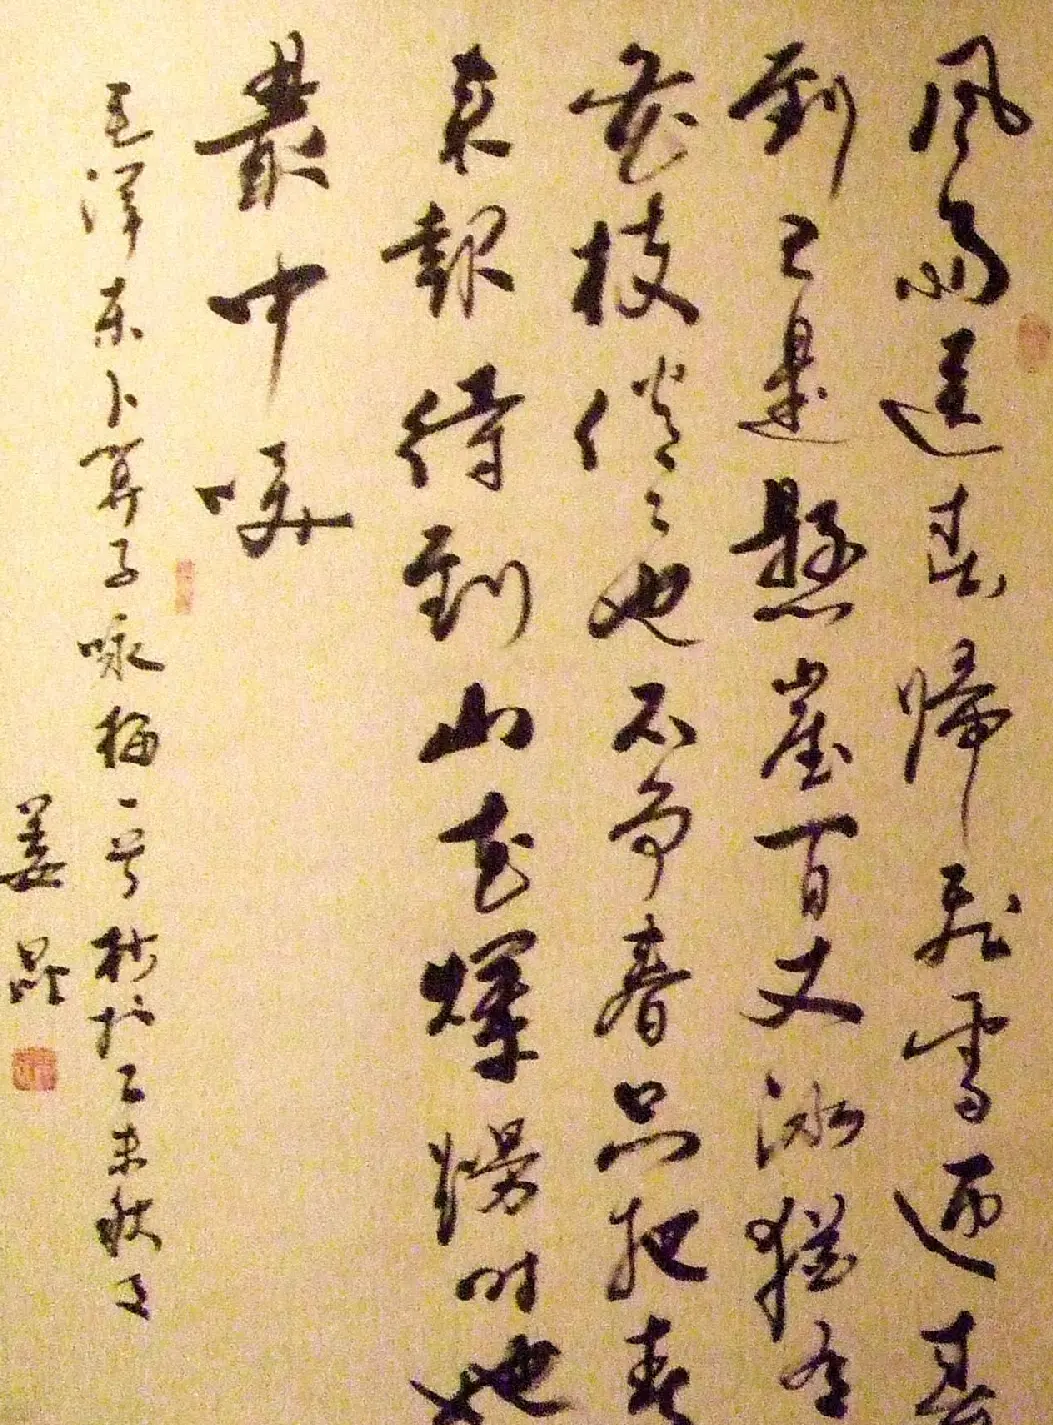 風雨送春歸飛雪迎春
到已是懸崖百丈冰猶有
花枝俏俏也不争春只把春
来報待到山花爛熳时她
叢中咲
毛澤东卜算子咏梅一首於乙未秋月
姜